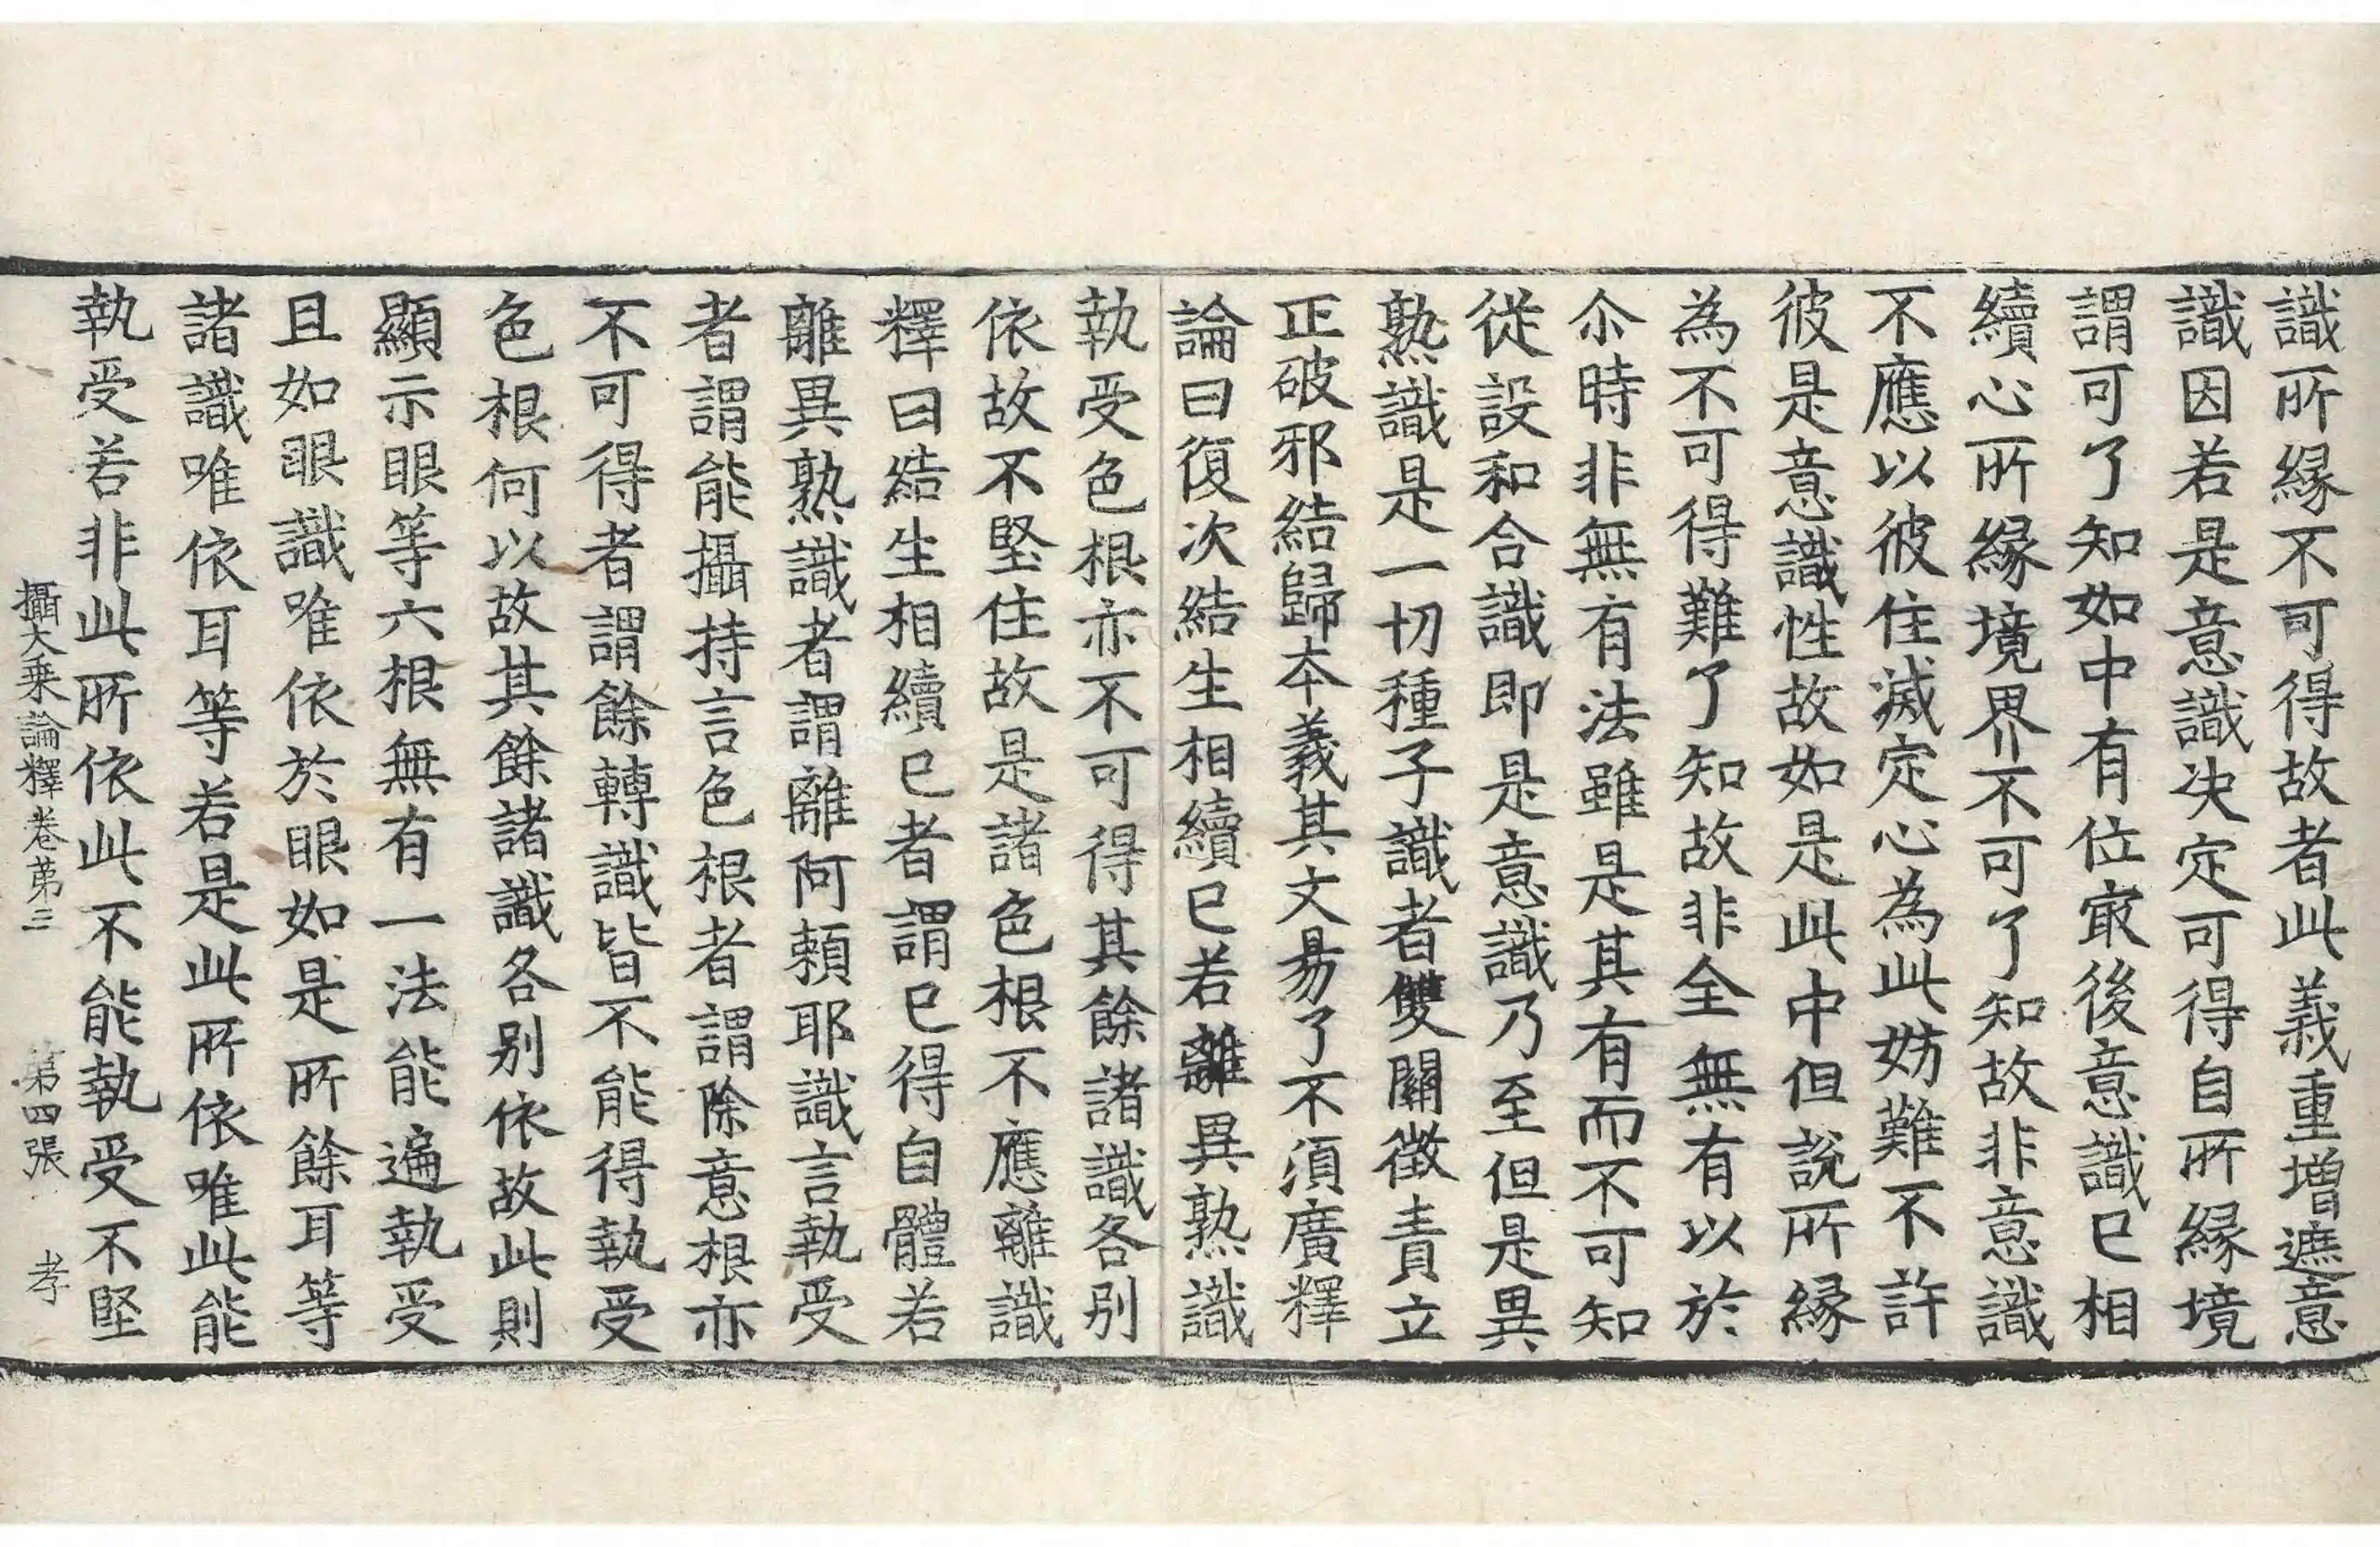 識所縁不可得故者此義重增遮意
識因若是意識决定可得自所縁境
謂可了知如中有位㝡後意識已相
續心所縁境界不可了知故非意識
不應以彼住滅定心為此妨難不許
彼是意識性故如是此中但說所縁
為不可得難了知故非全無有以於
尒時非無有法雖是其有而不可知
從設和合識即是意識乃至但是異
熟識是一切種子識者雙關徵責立
正破邪結歸本義其文易了不須廣釋
論曰復次結生相續已若離異熟識
執受色根亦不可得其餘諸識各別
依故不堅住故是諸色根不應離識
釋曰結生相續已者謂已得自體若
離異熟識者謂離阿頼耶識言執受
者謂能攝持言色根者謂除意根亦
不可得者謂餘轉識皆不能得執受
色根何以故其餘諸識各別依故此則
顯示眼等六根無有一法能遍執受
且如眼識唯依於眼如是所餘耳等
諸識唯依耳等若是此所依唯此能
執受若非此所依此不能執受不堅
攝大乗論釋卷第三 第四張 孝